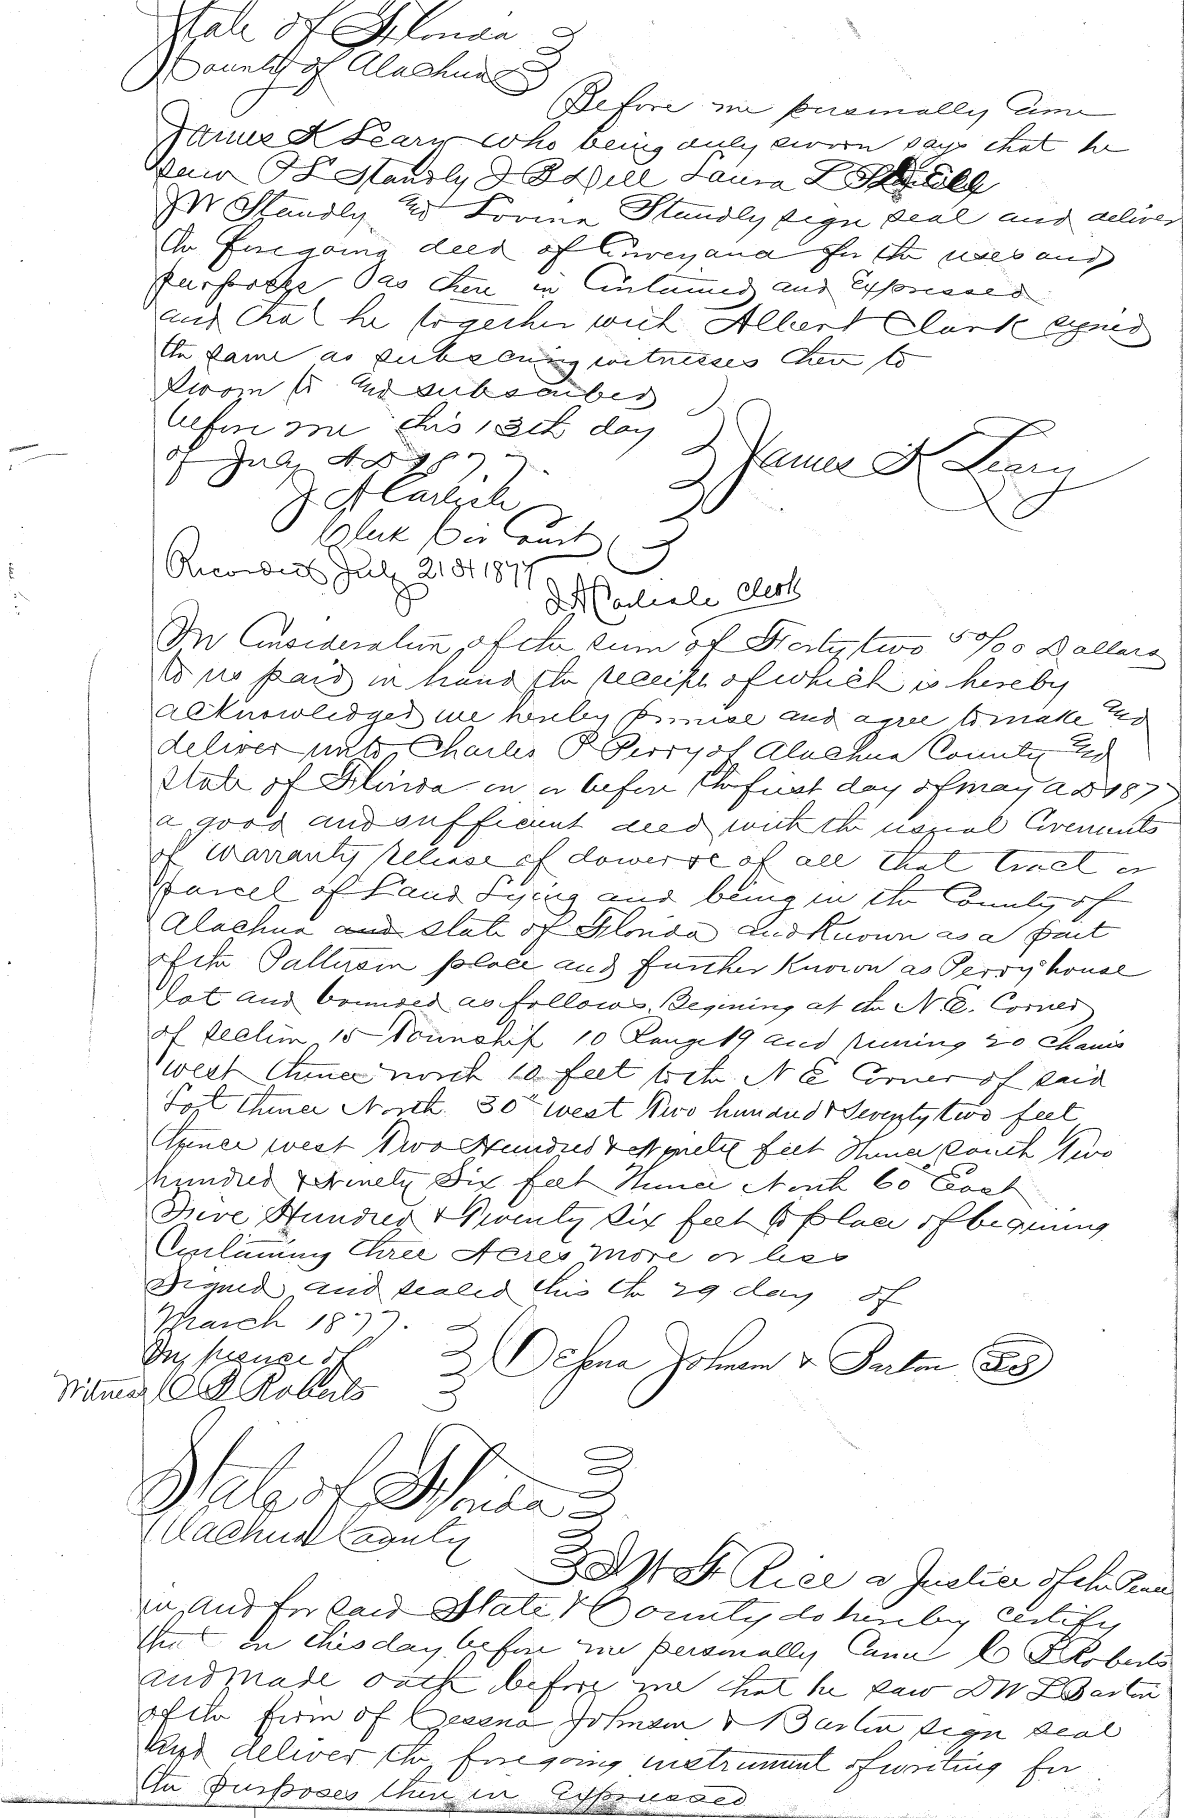 State of Florida
County of Alachua
Before me personally Came
James K Leary who being duly sworn says that he
saw Standly J B Dell Laura L Dell
J W Standly and Lovina Standly sign seal and deliver
the foregoing deed of Conveyance for the uses and
purposes as there in Contained and Expressed
and that he together with Albert Clark signed
the same as subscring witnesses there to
Sworn to and subscribed
before me this 13th day
of July A D 1877.
James K Leary
J A Carlisle
Clerk Cir Court
Recorded July 21st 1877
J A Carlisle Clerk
In Consideration of the sum of Forty two 50/00 Dollars
to us paid in hand the receipt of which is hereby
acknowledged we hereby promise and agree to make and
deliver unto Charles P Perry of Alachua County and
State of Florida on or before the first day of may A D 1877
a good and sufficient deed with the usual Covenants
of warranty release of dower &c of all that tract or
parcel of Land Lying and being in the County of
Alachua and state of Florida and Known as a part
of the place and further Known as Perry house
lot and bounded as follows. Begining at the N.E. Corner
of section 15 Township 10 Range 19 and runing 20 chains
west thence north 10 feet to the N E Corner of said
Lot thence North 30° west Two hundred & Seventy two feet
thence west Two Hundred & Ninety feet thence south Two
hundred & Ninety Six feet thence North 60° East
Five Hundred & Twenty Six feet to place of begining
Containing three Acres more or less
Signed and sealed this the 29 day of
March 1877.
In presence of
Cessna Johnson & Barton
Witness C F Roberts
State of Florida
Alachua County
I W F Rice a Justice of the Peace
in and for said State & County do hereby certify
that on this day before me personally Came C F Roberts
and made oath before me that he saw D W L Barton
of the firm of Cessna Johnson & Barton sign seal
and deliver the foregoing instrument of writing for
the purposes then in Expressed